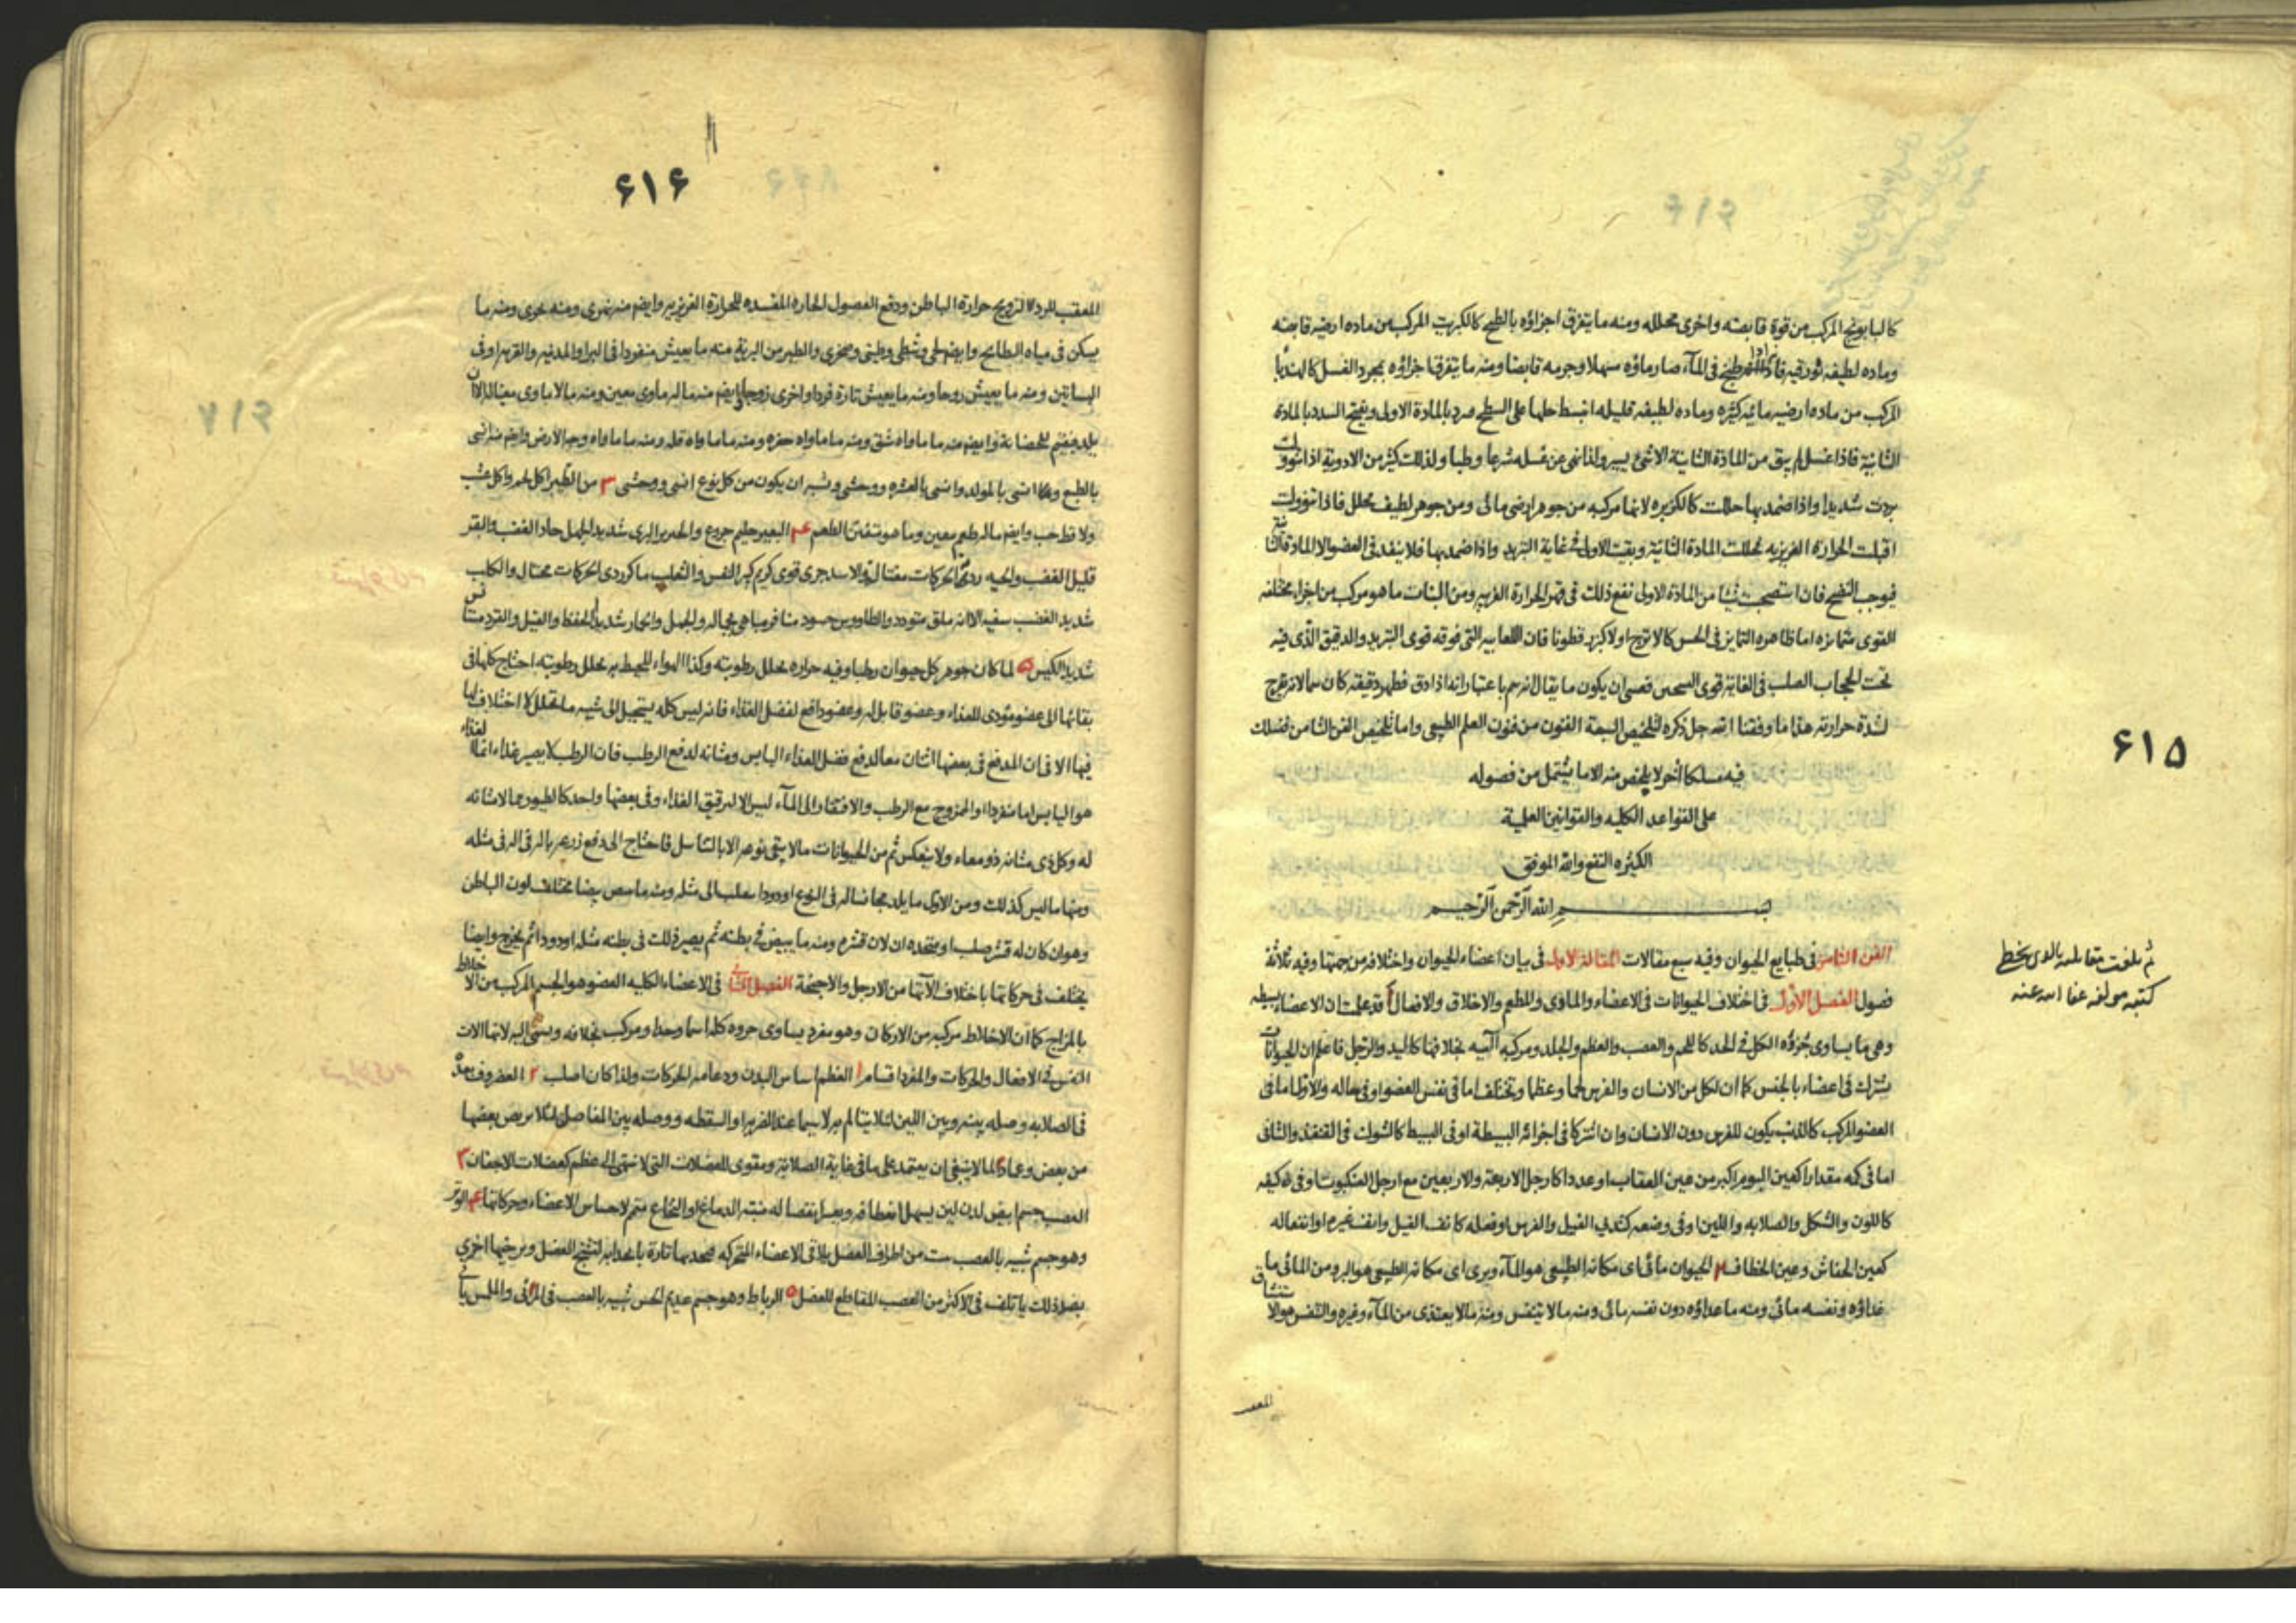 كالبابونج المركب من قوة قابضته واخرى محلله ومنه ما يتفرق اجزاؤه بالطبخ كالكرنب المركب من ماده ارضيه قابضه
وماده لطيفه بورقيه فاذا طبخ فى المآء صار ماؤه سهلا وجرمه قابضا ومنه ما يتفرق اجزاؤه بمجرد الغسل كالهندبا
المركب من ماده ارضيه مائيه كثيره وماده لطيفه قليله انبسط حلها على السطح مبرد بالمادة الاولى ويفتح السدد بالمادة
الثانية فاذا غسل لم يبق من المادة الثانية الا شئ يسير ولذا نهى عن غسله شرعا وطبا ولذلك كثير من الادوية اذا تنوولت
بردت شديدا واذا ضمد بها حللت كالكزبره لانها مركبه من جوهر ارضى مائى ومن جوهر لطيف محلل فاذا تنوولت
اقبلت الحرارة الغريزيه فحللت المادة الثانية وبقيت الاولى فى غاية التبريد واذا ضمد بها فلا ينفذ فى العضو الا المادة
فيوجب النضج فان استصحبت شيئا من المادة الاولى نفع ذلك فى قهر الحرارة الغريبه ومن النبات ما هو مركب من اجزاء مختلفه
القوى متمايزه اما ظاهره التمايز فى الحس كالاترج اولا كبزر قطونا فان اللعابيه التى فوقه قوى التبريد والدقيق الذى فيه
تحت الحجاب الصلب فى الغاية قوى التسخين فعسى ان يكون ما يقال انه سم باعتبار انه اذا دق فظهر دقيقه كان سما لانه
لشدة حرارته هذا ما وفقنا الله جل ذكره لتلخيص السبعة الفنون من فنون العلم الطبيعى واما تلخيص الفن الثامن فنسلك
فيه مسلكا آخر لا يلخص منه الا ما يشتمل من فصوله
على القواعد الكليه والقوانين العلمية
الكثيره النفع والله الموفق
بسم الله الرحمن الرحيم
الفن الثامن فى طبايع الحيوان وفيه سبع مقالات المقالة الاولى فى بيان اعضاء الحيوان واختلافه من جهتها وفيه ثلاثة
فصول الفصل الاول فى اختلاف الحيوانات فى الاعضاء والماوى والمطعم والاخلاق والافعال ا قد علمت ان الاعضاء بسيطه
وهى ما يساوى جزؤه الكل فى الحد كاللحم والعصب والعظم والجلد ومركبه آليه بخلافها كاليد والرجل فاعلم ان الحيوانات
يشترك فى اعضاء بالجنس كما ان لكل من الانسان والفرس لحما وعظما وتختلف اما فى نفس العضو او فى حاله والاول اما فى
العضو المركب كالذنب يكون للفرس دون الانسان وان اشتركا فى اجزائه البسيطة او فى البسيط كالشوك فى القنفذ والثانى
اما فى كه مقدارا كعين البوم اكبر من عين العقاب او عددا كارجل الاربعة والاربعين مع ارجل العنكبوت او فى كيفه
كاللون والشكل والصلابه واللين او فى وضعه كثدى الفيل والفرس او فعله كانف الفيل وانف غيره او انفعاله
كعين الخفاش وعين الخطاف ٢ الحيوان مائى اى مكانه الطبيعى هو المآء وبرى اى مكانه الطبيعى هو البر ومن المائى ما
غذاؤه ونفسه مائى ومنه ما غذاؤه دون نفسه مائى ومنه ما لا يتنفس ومنه ما لا يغتذى من المآء وغيره والتنفس هو الاستنشاق
المعقب
ثم بلغت مقابلته بالذى بخط
كتبه مولفه عفا الله عنه
۶۱۵
۶۱۶
المعقب للرد لترويح حرارة الباطن ودفع الفضول الحاره المفسده للحرارة الغريزيه وايضا منه نهرى ومنه بحرى ومنه ما
يسكن فى مياه البطايح وايضا لجى وشطى وطينى وصخرى والطير من البرية منه ما يعيش منفردا فى البر او المدنيه والقريه او فى
البساتين ومنه ما يعيش زوجا ومنه ما يعيش تارة فردا واخرى زوجا وايضا منه ما له ماوى معين ومنه ما لا ماوى معينا له الا ان
يلد فيقيم للحضانة وايضا منه ما ماواه شق ومنه ما ماواه حفره ومنه ما ماواه قله ومنه ما ماواه وجه الارض وايضا منه انسى
بالطبع وانسى بالمولد وانسى بالعشره ووحشى ويشبه ان يكون من كل نوع انسى ووحشى ٣ من الطير اكل لحم واكل عشب
ولاقط حب وايضا ما له طعم معين وما هو متفنن الطعم ۴ البعير حليم جزوع والخنزير البرى شديد الجهل حاد الغضب والبقر
قليل الغضب والحيه ردى الحركات مغتاله والاسد جرى قوى كريم كبير النفس والثعلب ماكر ردى الحركات محتال والكلب
شديد الغضب سفيه الا انه ملق متودد والطاووس حسود مباهى بجماله والجمل والحمار شديد الحفظ والفيل والقرد
شديد الكيس ۵ لما كان جوهر كل حيوان رطبا وفيه حراره تحلل رطوبته وكذا الهواء المحيط به يحلل رطوبته احتاج كلها فى
بقائها الى عضو مودى للغذاء وعضو قابل له وعضو دافع لفضل الغذاء فانه ليس كله يستحيل الى شبه ما تحلل لا اختلاف لها
فيها الا فى ان المدفع فى بعضها اثنان معا لدفع فضل الغذاء اليابس ومثانه لدفع الرطب فان الرطب لا يصير غذاء انما الغذاء
هو اليابس اما منفردا او الممزوج مع الرطب والافتقار الى المآء ليس الا لترقيق الغذاء وفى بعضها واحد كالطيور مما لا مثانه
له وكل ذى مثانه ذو معاء ولا ينعكس ثم من الحيوانات ما لا يبقى نوعه الا بالتناسل فاحتاج الى دفع زرعه بآله فى آله فى مثله
ومنها ما ليس كذلك ومن الاول ما يلد مجانسا له فى النوع او دودا الى مثله ومنه ما بيضا مختلف لون الباطن
وهو ان كان له قشر صلب او متحده ان لان قشره ومنه ما يبيض فى بطنه ثم يصير ذلك فى بطنه مثله او دودا ثم يخرج وايضا
يختلف فى حركاتها باختلاف آلاتها من الارجل والاجنحة الفصل الثانى فى الاعضاء الكليه العضو هو الجسم المركب من الاخلاط
بالمزاج كما ان الاخلاط مركبه من الاركان وهو مفرد يساوى جزوه كله اسما وحدا ومركب بخلافه ويسمى اليه لانها الات
النفس فى الافعال والحركات والمفرد اقسام ١ العظم اساس البدن ودعامه الحركات ولذا كان اصلب ٢ الغضروف بعده
فى الصلابه وصله بينه وبين اللين لئلا يتالم به لا سيما عند الضربه او السقطه ووصله بين المفاصل لئلا يرض بعضها
من بعض وعماد لما لا ينبغى ان يعتمد على ما فى غاية الصلابة ومقوى للعضلات التى لا تنتهى الى عظم كعضلات الاجفان ٣
العصب جسم ابيض لدن لين يسهل انعطافه ويعسر انفصاله منبته الدماغ او النخاع متمم لاحساس الاعضاء وحركاتها ۴ الوتر
وهو جسم شبيه بالعصب من اطراف العضل يلاقى الاعضاء المتحركه تارة بانجذابه لتشنج العضل ويرخيها اخرى
بضد ذلك ياتلف فى الاكثر من العصب المقاطع للعضل ۵ الرباط وهو جسم عديم الحس شبيه بالعصب فى المرئى والملمس